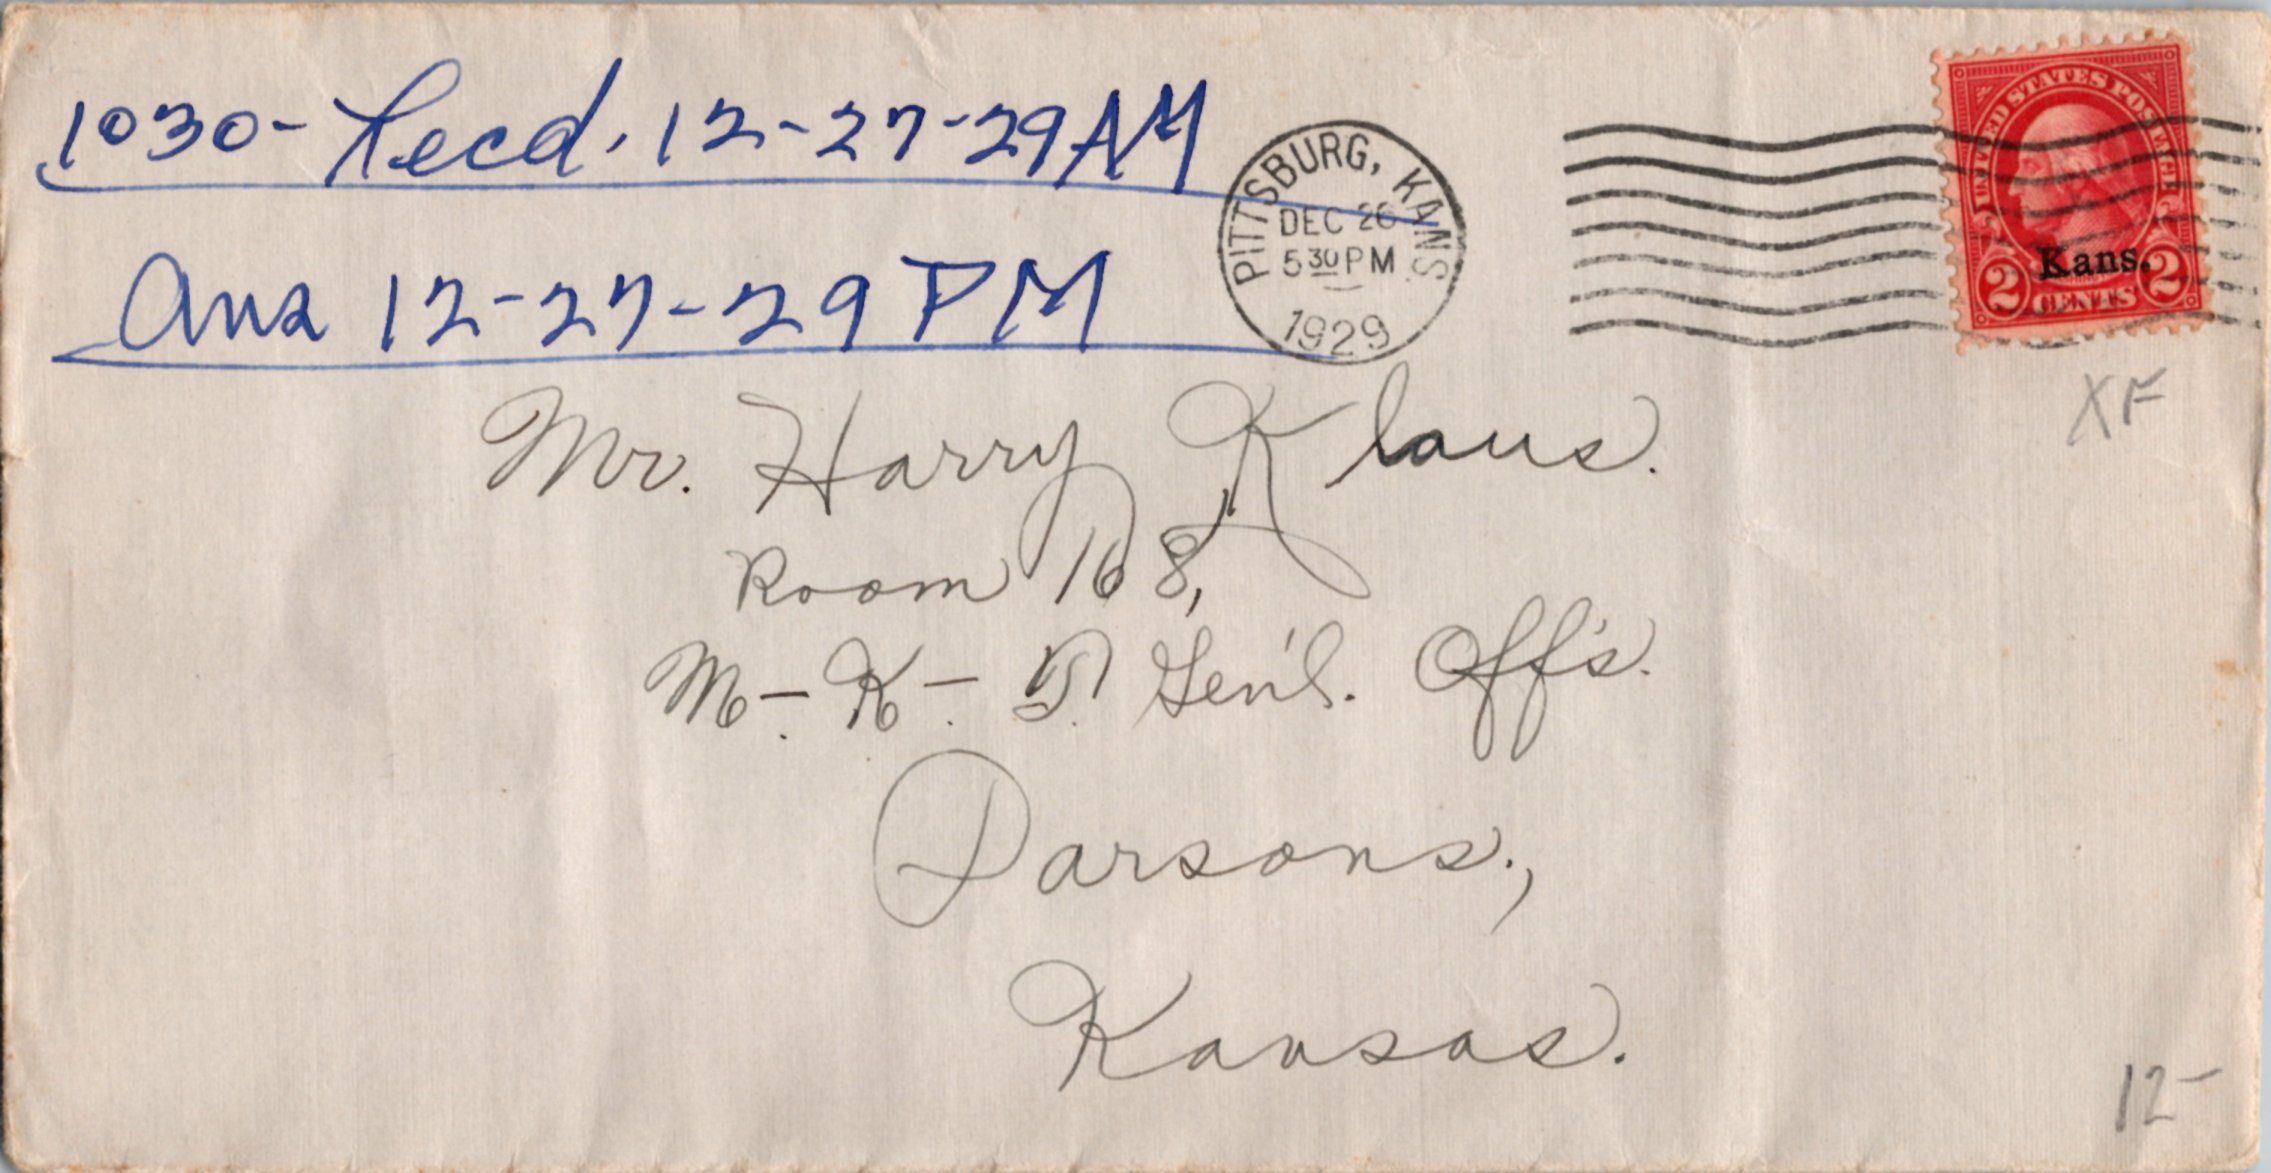 1030- Recd. 12-27-29 AM
Ans 12-27-29 PM
PITTSBURG, KANS.
DEC 26
5 30 PM
1929
UNITED STATES POSTAGE
Kans.
2 CENTS 2
XF
Mr. Harry Klaus.
Room 168,
M-K-T. Gen'l. Off's.
Parsons,
Kansas.
12-